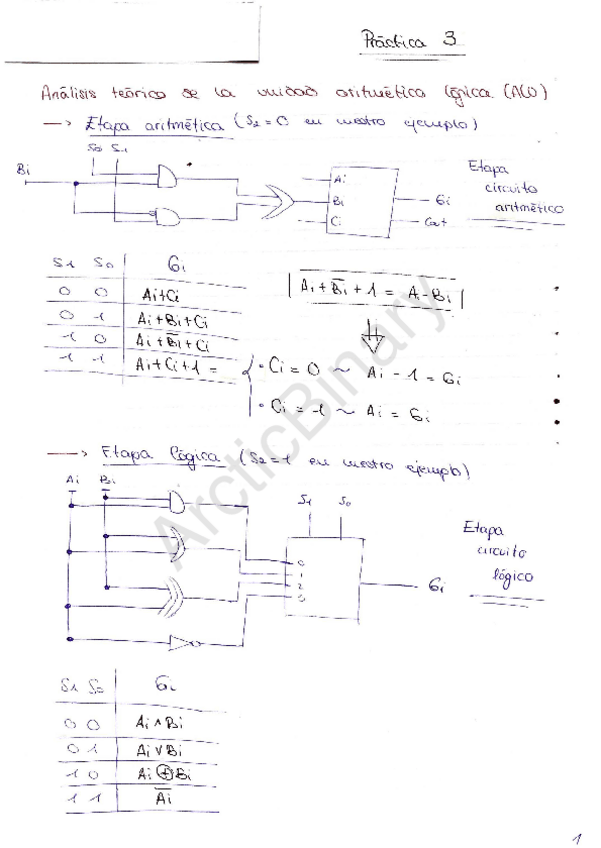 Práctica 3
Análisis teórico de la unidad aritmética lógica (ALU)
—> Etapa aritmética (S2=0 en nuestro ejemplo)
S0 S1
Bi
Ai
Bi
Ci
Gi
Cout
Etapa
circuito
aritmético
S1 S0 Gi
0 0 Ai+Ci
0 1 Ai+Bi+Ci
1 0 Ai+B̅i+Ci
1 1 Ai+Ci+1 =
Ai+B̅i+1 = Ai-Bi
· Ci=0 ~ Ai-1=Gi
· Ci=1 ~ Ai=Gi
—> Etapa lógica (S2=1 en nuestro ejemplo)
Ai Bi
S1 S0
0
1
2
3
Gi
Etapa
circuito
lógico
S1 S0 Gi
0 0 Ai ∧ Bi
0 1 Ai ∨ Bi
1 0 Ai ⊕ Bi
1 1 A̅i
1
ArcticBinary